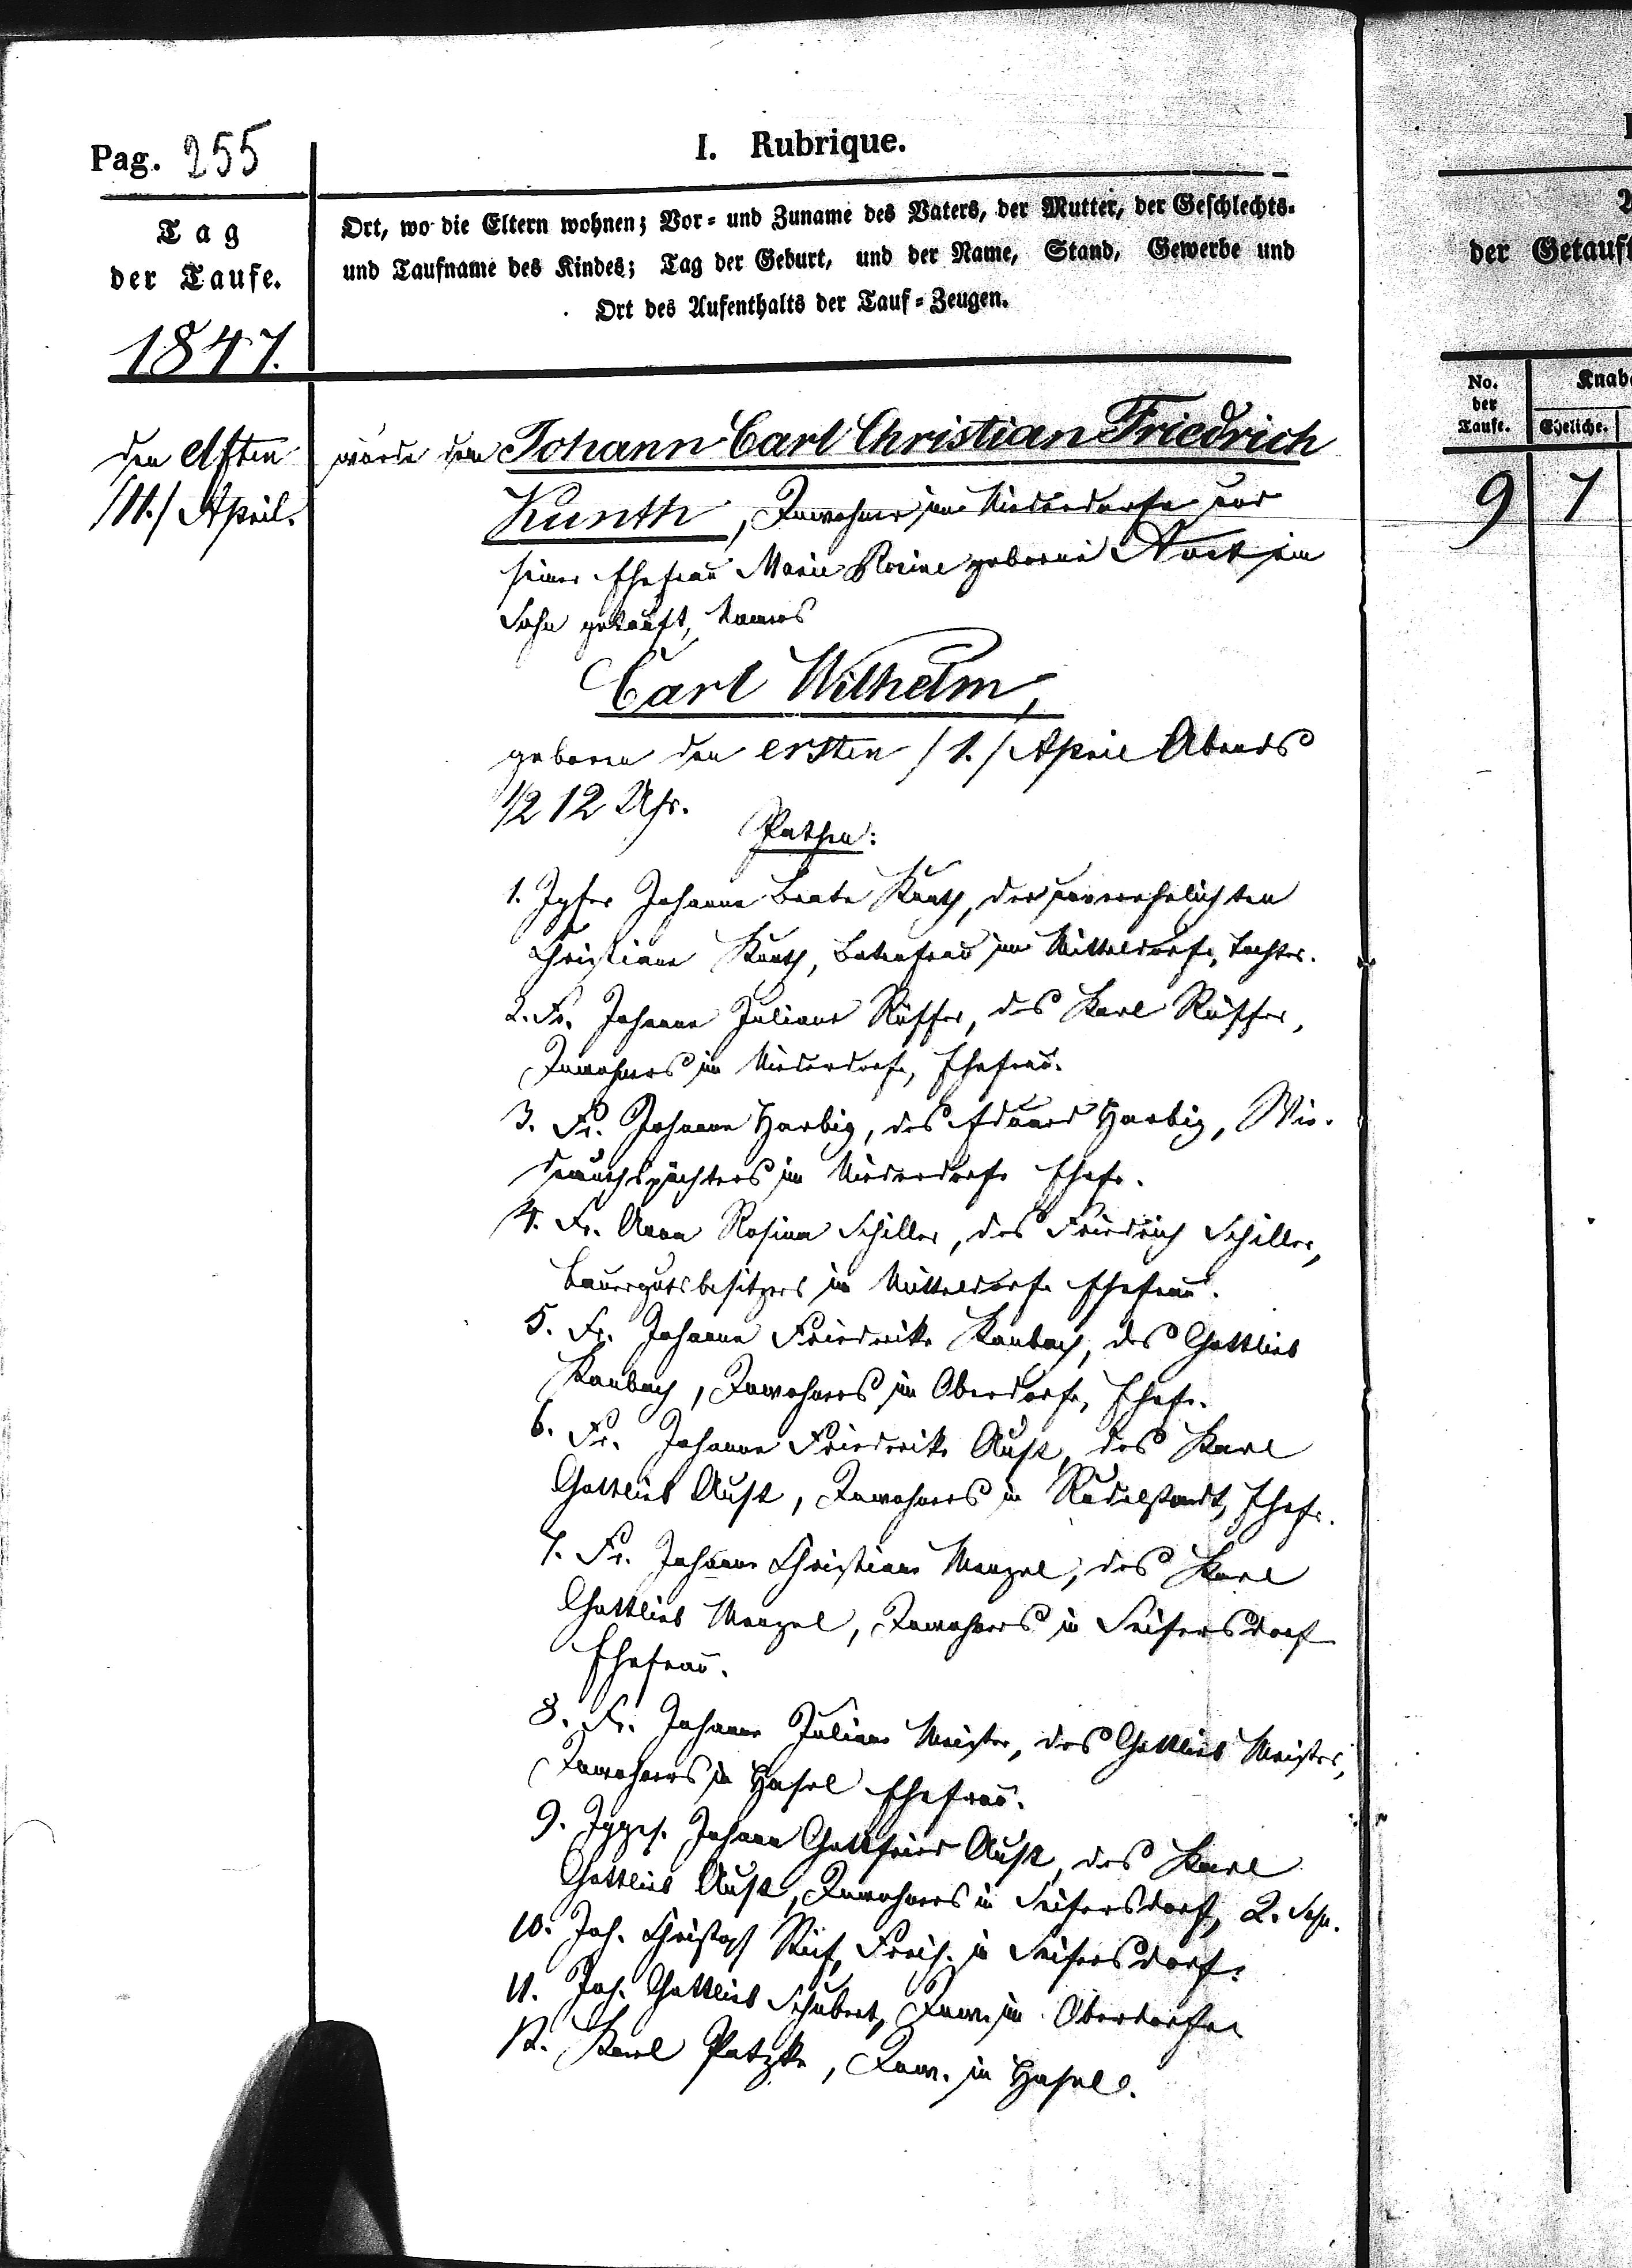 Pag. 255
I. Rubrique.
Tag
der Taufe.
1847.
Ort, wo die Eltern wohnen; Vor- und Zuname des Vaters, der Mutter, der Geschlechts-
und Taufname des Kindes; Tag der Geburt, und der Name, Stand, Gewerbe und
Ort des Aufenthalts der Tauf-Zeugen.
den elften
/11./ April.
wurde dem Johann Carl Christian Friedrich
Kunth, Inwohner im Niederdorfe und
seiner Ehefrau Marie Rosine geborne ein
Sohn getauft, Namens
Carl Wilhelm,
geboren den ersten /1./ April Abends
1/2 12 Uhr.
Pathen:
1. Jgfer Johanne Beate Kunth, der unverehelichten
Christiane Kunth, Botenfrau im Mitteldorfe, Tochter.
2. Fr. Johanne Juliane Rüffer, des Karl Rüffer,
Inwohners im Niederdorfe, Ehefrau.
3. Fr. Johanne Harbig, des Eduard Harbig,
im Niederdorfe Ehefr.
4. Fr. Anna Rosina Schiller, des Friedrich Schiller,
Bauergutsbesitzers im Mitteldorfe Ehefrau.
5. Fr. Johanne Friedrike Raubach, des Gottlieb
Raubach, Inwohners im Oberdorfe, Ehefr.
6. Fr. Johanne Friederike Aust, des Karl
Gottlieb Aust, Inwohners in Rudelstadt, Ehefr.
7. Fr. Johanne Christiane Menzel, des Karl
Gottlieb Menzel, Inwohners in Seifersdorf
Ehefrau.
8. Fr. Johanne Juliane Meister, des Gottlieb Meister,
Inwohners in Hasel Ehefrau.
9. Jggs. Johann Gottfried Aust, des Karl
Gottlieb Aust, Inwohners in Seifersdorf, 2. Sohn.
10. Joh. Christoph in Seifersdorf.
11. Joh. Gottlieb Schubert, Inw. im Oberdorfe
12. Karl Patzke, Inw. in Hasel.
der Getauft
No.
der
Taufe.
Knab
Eheliche.
9
1